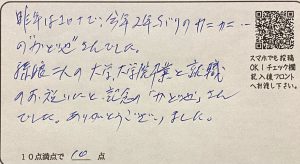 昨年はコロナで、今年2年ぶりのカニカニ…
の"かどや"さんでした。
孫娘二人の大学、大学院卒業と就職
のお祝いにと、記念の「かどや」さん
でした。ありがとうございました。
スマホでも投稿
OK！チェック欄
記入後フロント
へお渡し下さい。
10点満点で 10 点